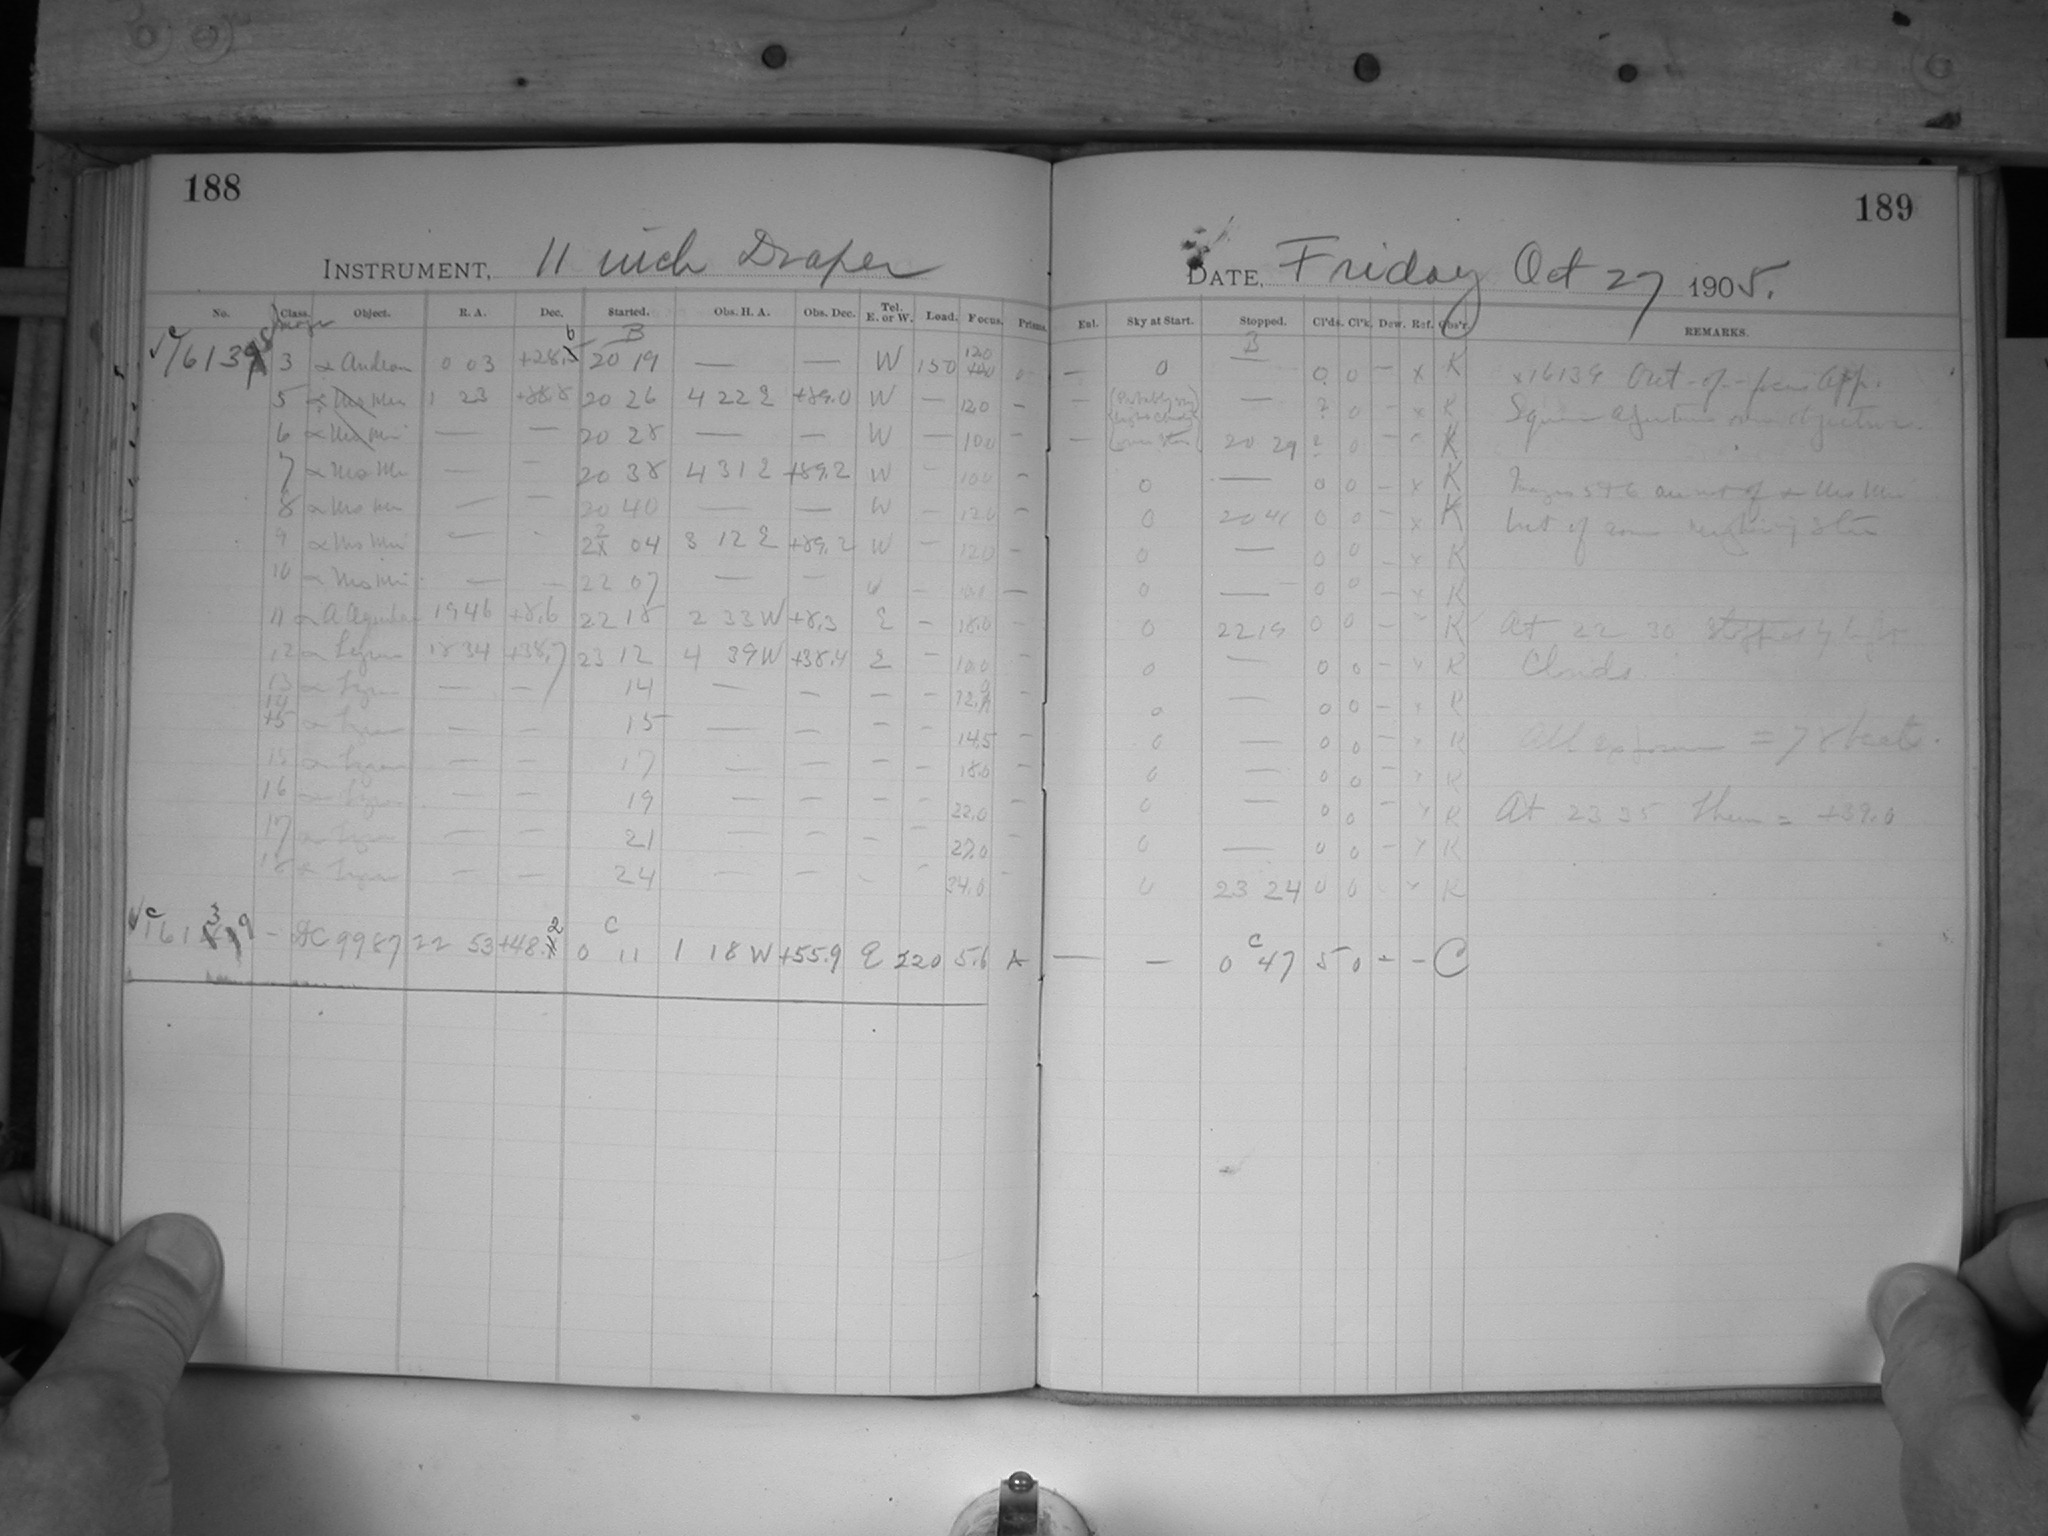 188
189
INSTRUMENT, 11 inch Draper
DATE, Friday Oct 27 1905.
No. Class. Object. R. A. Dec. Started. Obs. H. A. Obs. Dec. Tel. E. or W. Load. Focus. Prisms. Enl. Sky at Start. Stopped. Cl'ds. Cl'k. Dew. Ref. Obs'r. REMARKS.
Image B B
3 α Androm 0 03 20 19 — — W 150 120 — 0 — 0 0 — x K x16139 Out-of-focus App.
5 α 1 23 +88.8 20 26 4 22 E +89.0 W — 120 — (Probably — ? 0 — x K Square aperture over objective.
6 α — — 20 28 — — W — 100 — — 20 29 0 — K
7 α Urs Min — — 20 38 4 31 E +89.2 W — 100 — 0 — 0 0 — x K Images 5+6 are not of α Urs Min
8 α Urs Min — — 20 40 — — W — 120 — 0 20 41 0 0 — x K but of some neighboring star
9 α Urs Min — — 22 04 3 12 E +89.2 W — 120 — 0 — 0 0 — x K
10 α Urs Min — — 22 07 — — W — 100 — 0 — 0 0 — x K
11 19 46 +8.6 22 18 2 33 W +8.3 E — 18.0 0 22 19 0 0 — K At 22 30 stopped by light
12 α Lyrae 18 34 +38.7 23 12 4 39 W +38.4 E — 10.0 — 0 — 0 0 — x K Clouds
13 α Lyrae — — 14 — — — — 12.0 — 0 — 0 0 — K
14 α Lyrae — — 15 — — — — 14.5 — 0 — 0 0 — K All exposures = 78 beats.
15 α Lyrae 17 — — — — 18.0 — 0 — 0 0 — K
16 α Lyrae — — 19 — — — — 22.0 — 0 — 0 0 — K At 23 35 Therm = +39.0
17 α Lyrae — — 21 — — — — 27.0 — 0 — 0 0 — K
18 α Lyrae — — 24 — — — — 34.0 — 0 23 24 0 0 — K
— DC 9987 22 53 +48.2 0 11 1 18 W +55.9 E 220 5.6 A — — 0 47 5 0 — — C